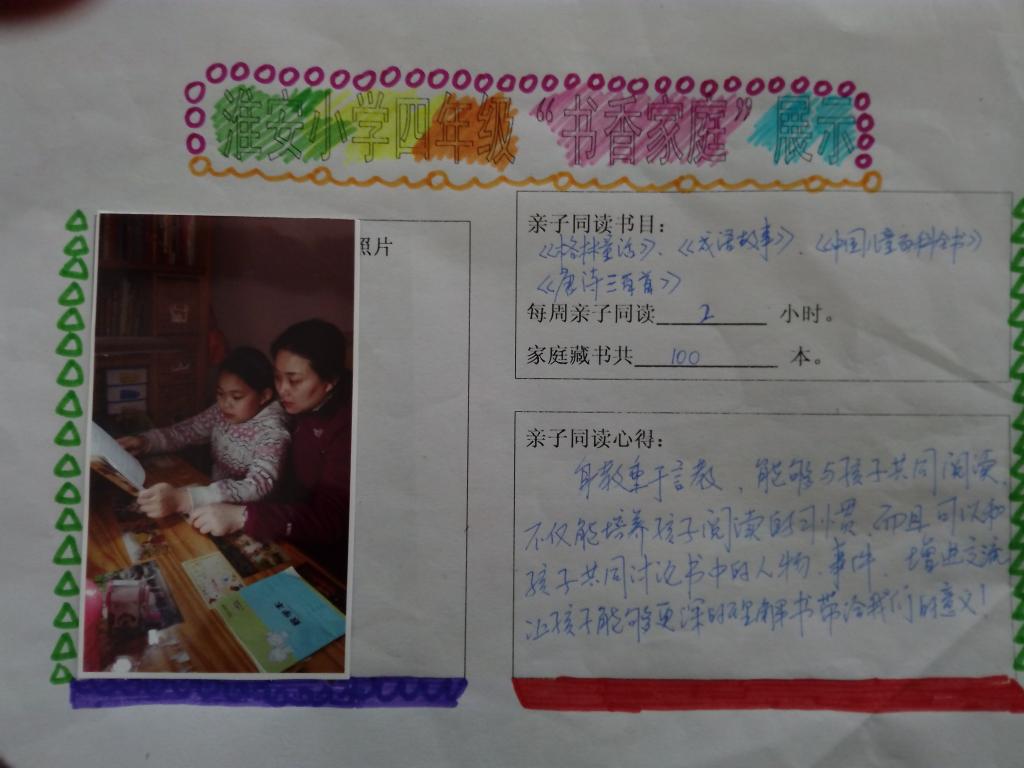 淮安小学四年级“书香家庭”展示
照片
亲子同读书目：
《格林童话》、《成语故事》、《中国儿童百科全书》
《唐诗三百首》
每周亲子同读 2 小时。
家庭藏书共 100 本。
亲子同读心得：
身教重于言教，能够与孩子共同阅读，
不仅能培养孩子阅读的习惯，而且可以和
孩子共同讨论书中的人物、事件，增进交流
让孩子能够更深的理解书带给我们的意义！